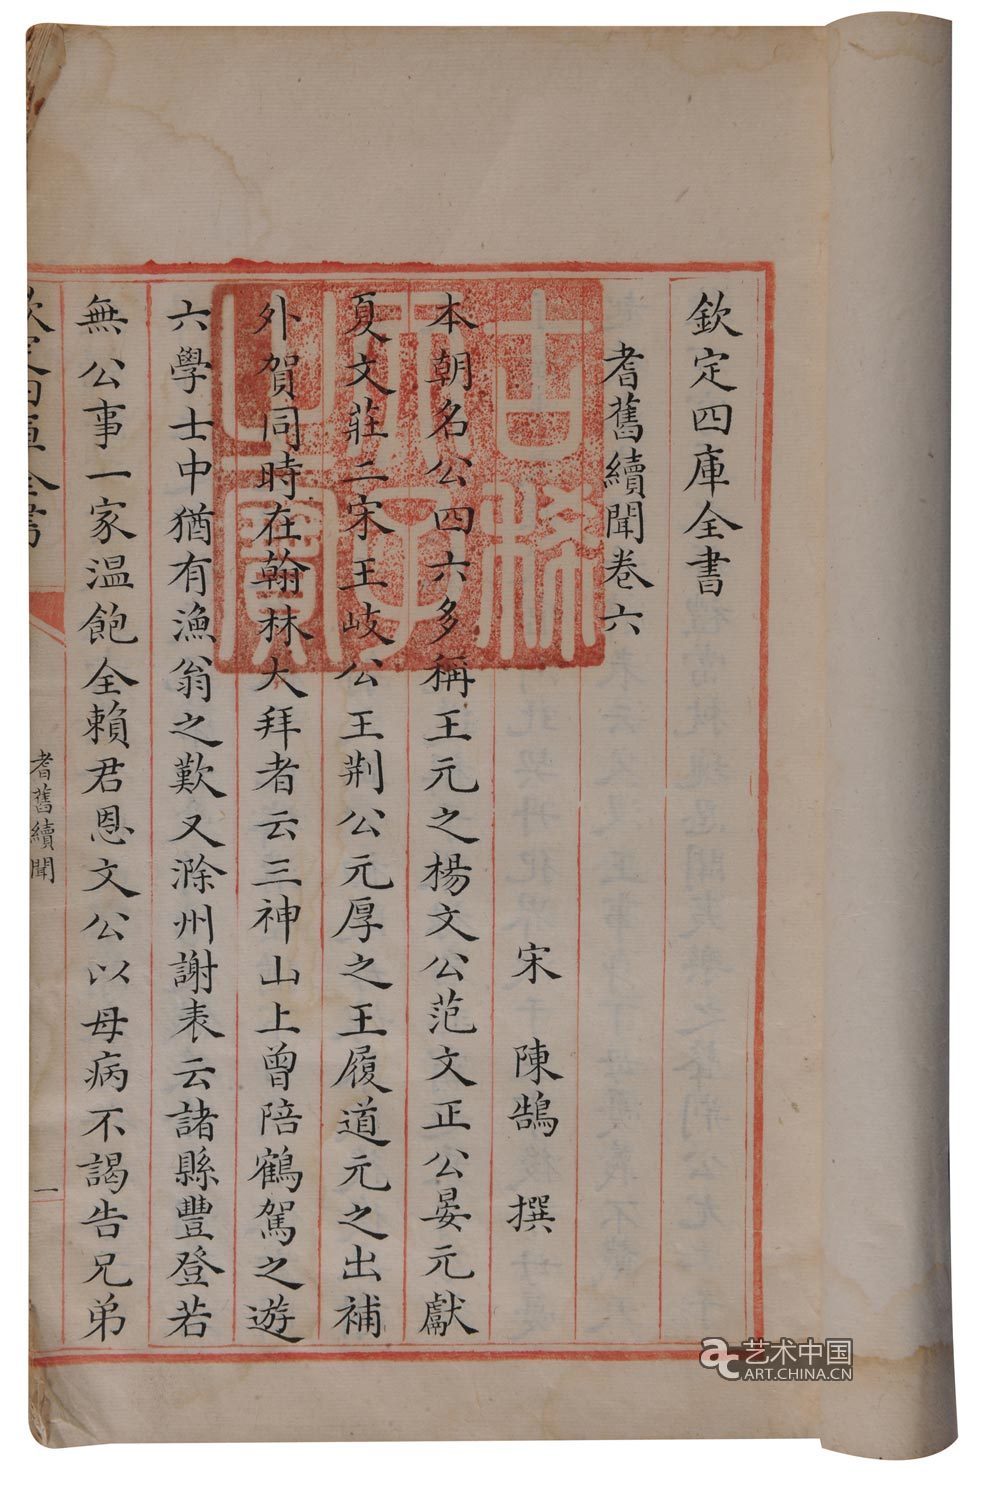 欽定四庫全書
耆舊續聞卷六
宋 陳鵠 撰
本朝名公四六多稱王元之楊文公范文正公晏元獻
夏文莊二宋王岐公王荆公元厚之王履道元之出補
外賀同時在翰林大拜者云三神山上曾陪鶴駕之遊
六學士中猶有漁翁之歎又滁州謝表云諸縣豐登若
無公事一家温飽全賴君恩文公以母病不謁告兄弟
欽定四庫全書
耆舊續聞
一
古稀天子之寶
艺术中国
ART.CHINA.CN